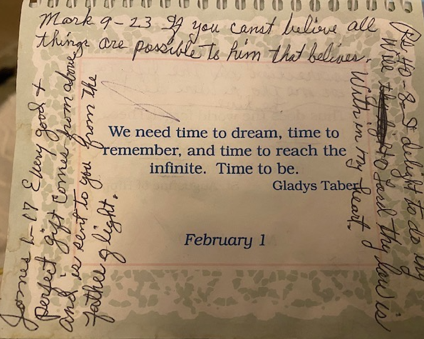 Mark 9-23 If you canst believe all
things are possible to him that believes.
We need time to dream, time to
remember, and time to reach the
infinite. Time to be.
Gladys Taber
February 1
James 1-17 Every good +
perfect gift comes from above
and is sent to you from the
father of light.
Ps 40-8 I delight to do my
Will law is
Within my heart.